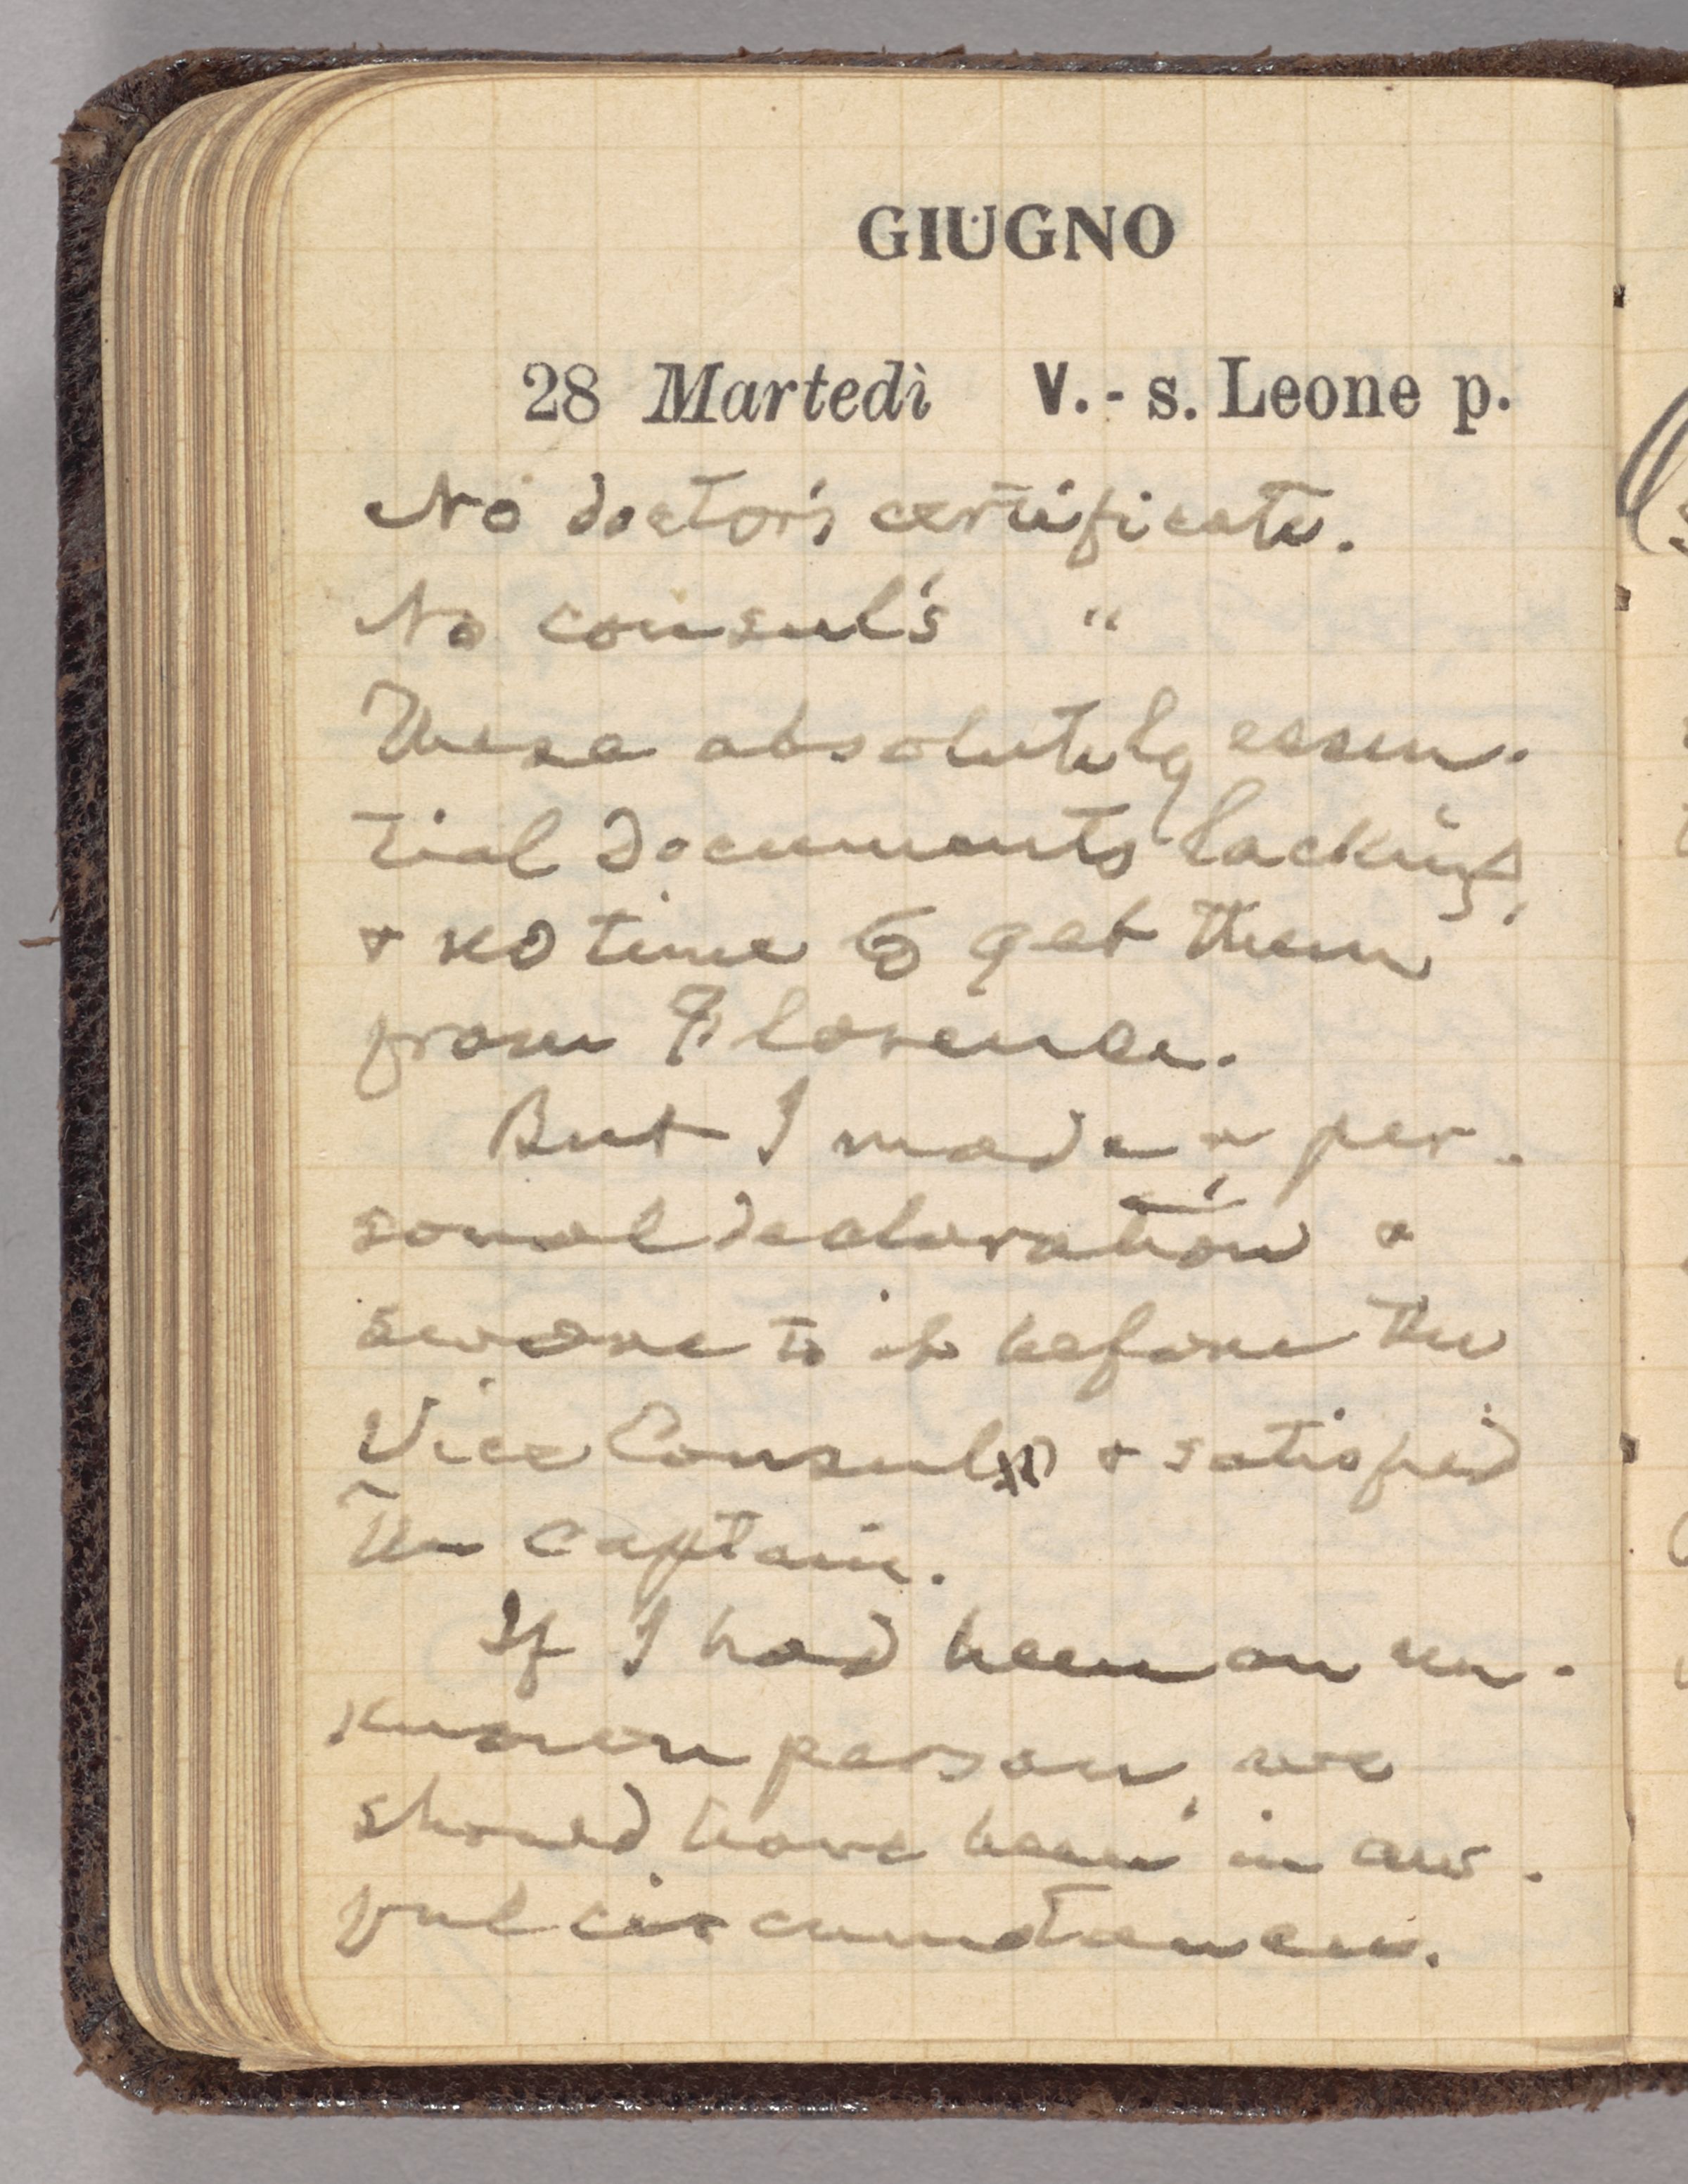 GIUGNO
28 Martedì V.- s. Leone p.
No doctor's certificate.
No consul's "
These absolutely essen-
tial documents lacking,
& no time to get them
from Florence.
But I made a per-
sonal declaration &
swore to it before the
Vice Consul & satisfied
the captain.
If I had been an un-
known person, we
should have been in aw-
ful circumstances.